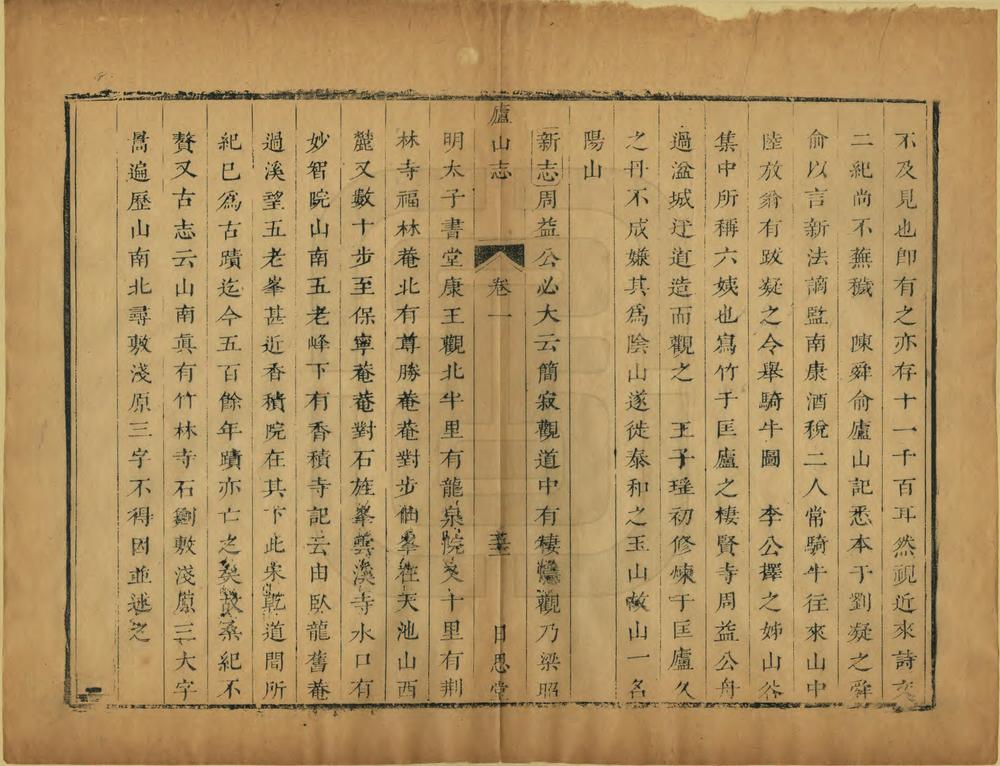 不及見也卽有之亦存十一千百耳然視近來詩文
二紀尚不蕪穢　陳舜俞廬山記悉本于劉凝之舜
俞以言新法謫監南康酒稅二人常騎牛往來山中
陸放翁有跋凝之令舉騎牛圖　李公擇之姊山谷
集中所稱六姨也寫竹于匡廬之棲賢寺周益公舟
過湓城迂道造而觀之　王子瑤初修煉于匡廬久
之丹不成嫌其爲陰山遂徙泰和之王山故山一名
陽山
新志周益公必大云簡寂觀道中有棲觀乃梁昭
廬山志　卷一　日思堂
明太子書堂康王觀北半里有龍泉院又十里有荆
林寺福林菴北有尊勝菴菴對步仙峯在天池山西
麓又數十步至保寧菴菴對石旌峯雲溪寺水口有
妙智院山南五老峰下有香積寺記云由臥龍舊菴
過溪望五老峯甚近香積院在其下此宋乾道間所
紀已爲古蹟迄今五百餘年蹟亦亡之矣故桑紀不
贅又古志云山南眞有竹林寺石劖敷淺原三大字
暠遍歷山南北尋敷淺原三字不得因並述之